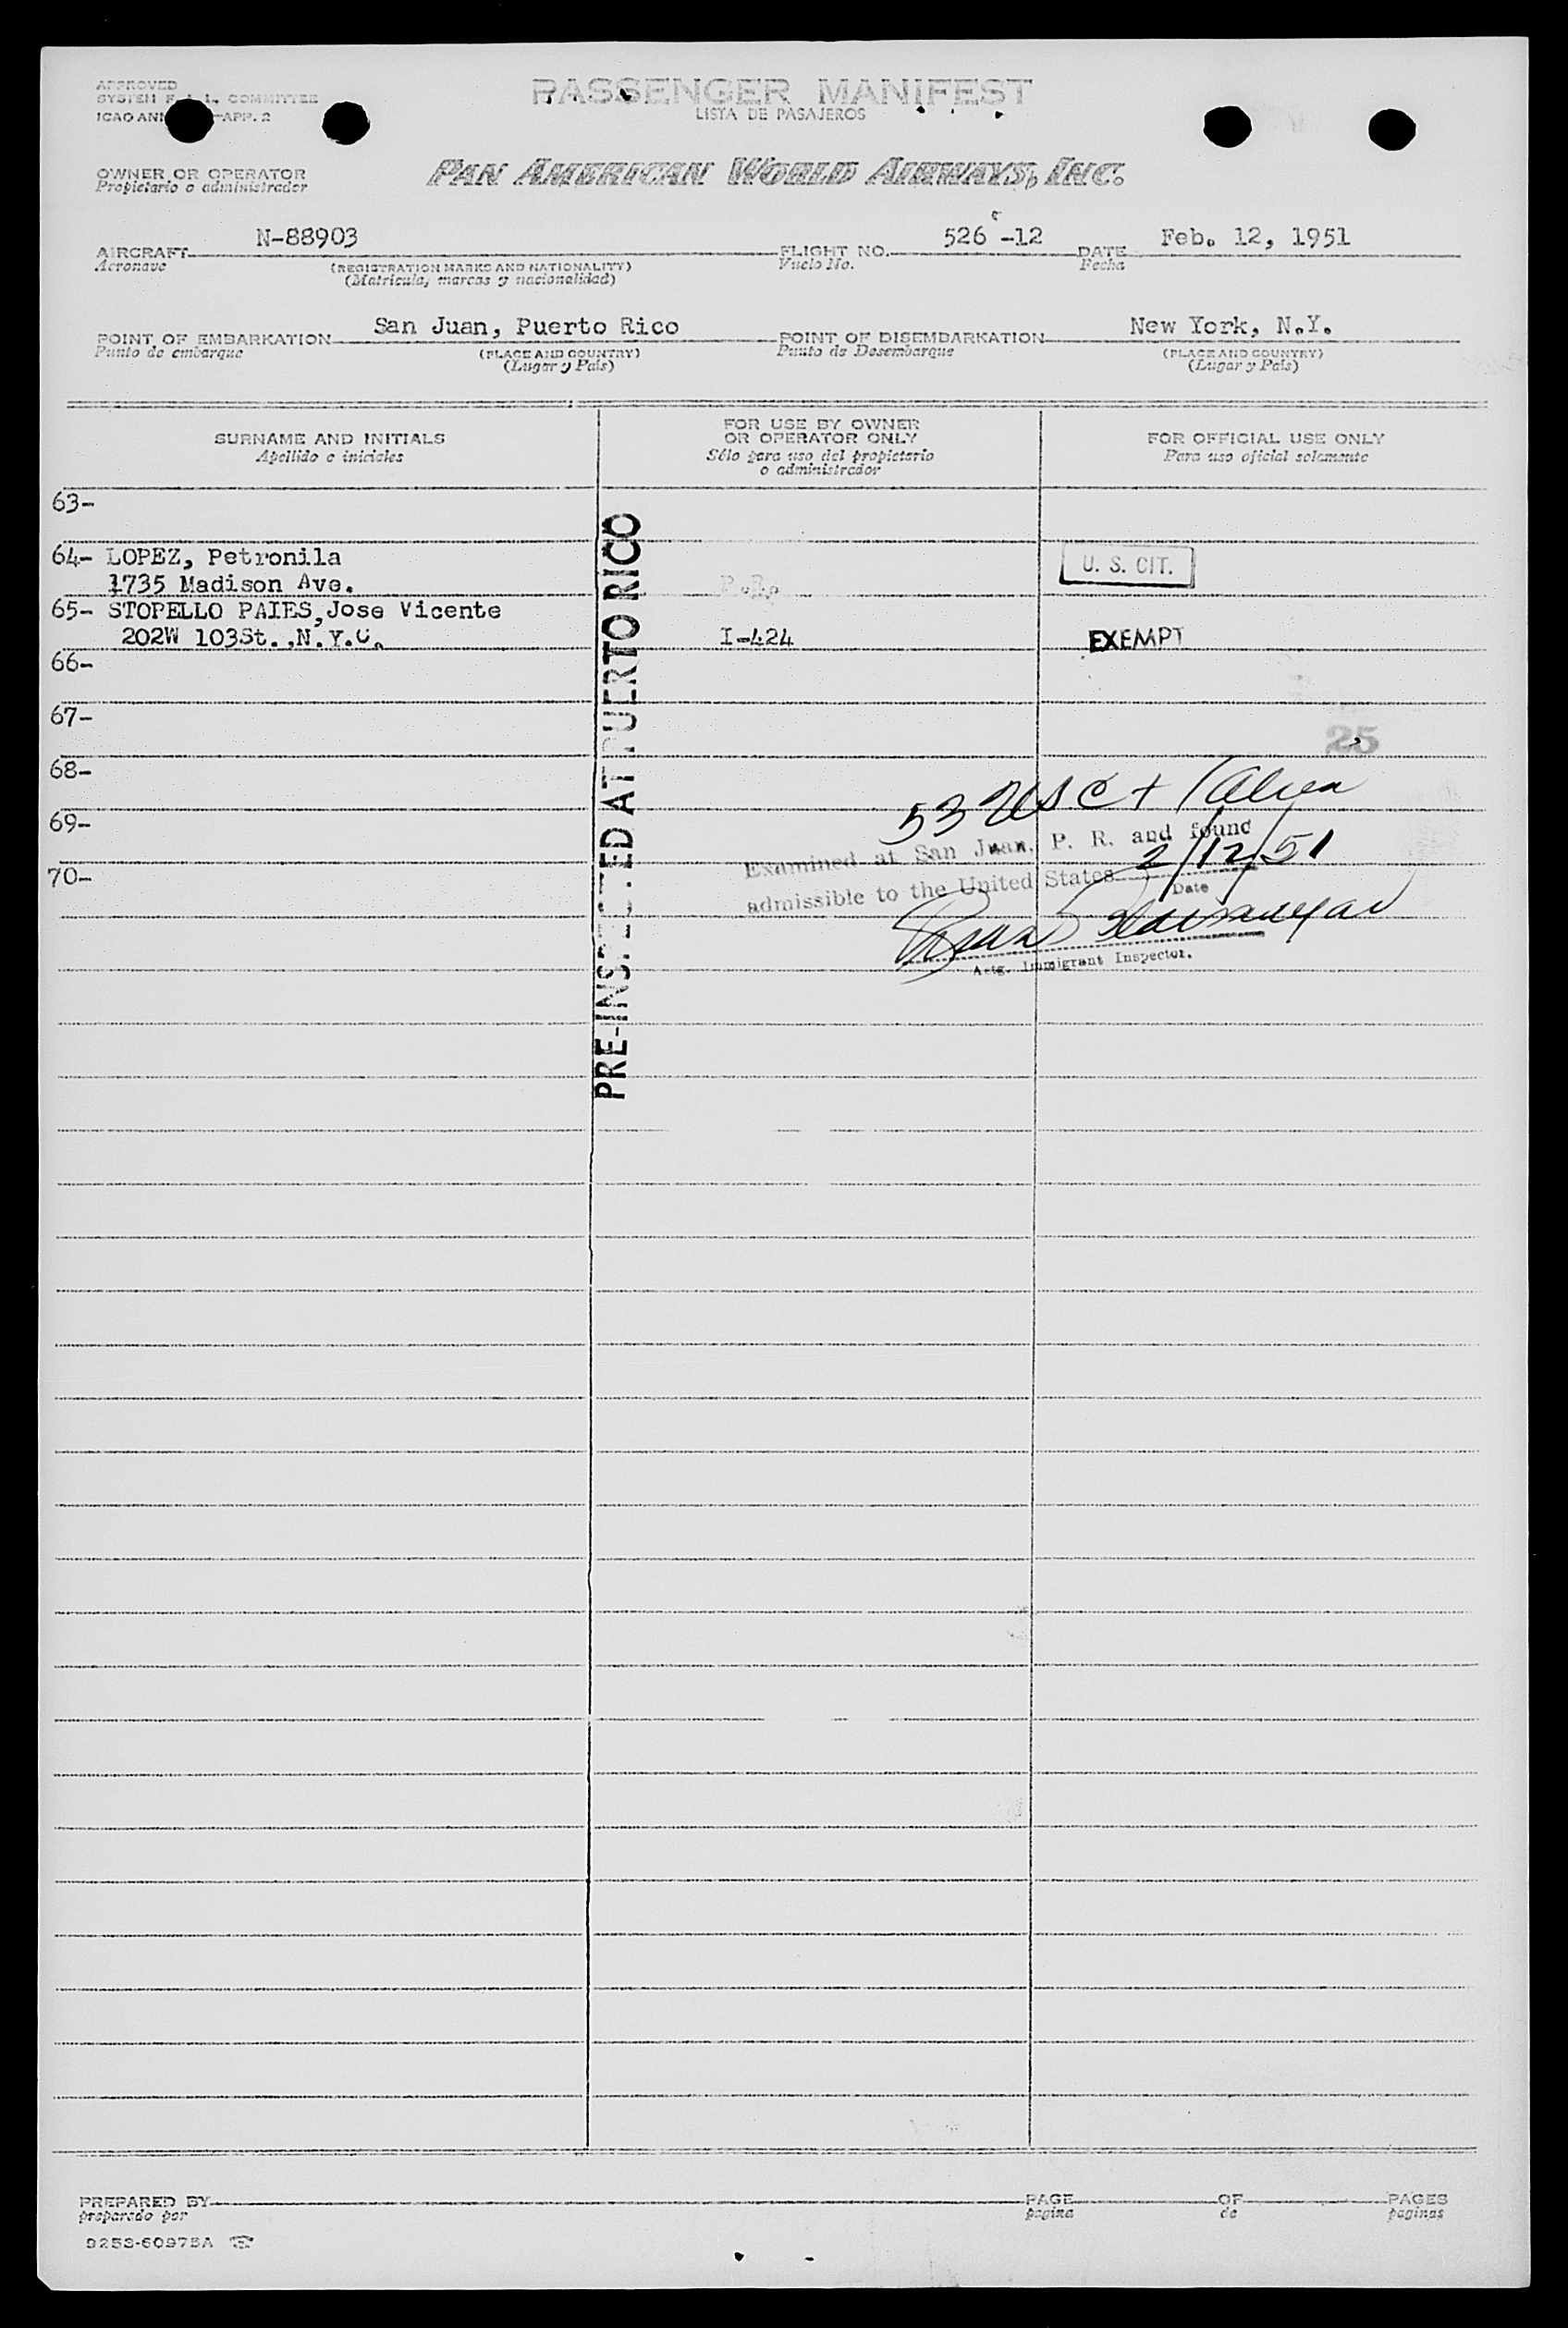 APPROVED
SYSTEM F.A.L. COMMITTEE
ICAO ANN APP. 2
PASSENGER MANIFEST
LISTA DE PASAJEROS
OWNER OR OPERATOR
Propietario o administrador
PAN AMERICAN WORLD AIRWAYS, INC.
AIRCRAFT N-88903 FLIGHT NO. 526 -12 DATE Feb. 12, 1951
Aeronave (REGISTRATION MARKS AND NATIONALITY) Vuelo No. Fecha
(Matricula, marcas y nacionalidad)
POINT OF EMBARKATION San Juan, Puerto Rico POINT OF DISEMBARKATION New York, N.Y.
Punto de embarque (PLACE AND COUNTRY) Punto de Desembarque (PLACE AND COUNTRY)
(Lugar y País) (Lugar y País)
SURNAME AND INITIALS
Apellido e iniciales
FOR USE BY OWNER
OR OPERATOR ONLY
Sólo para uso del propietario
o administrador
FOR OFFICIAL USE ONLY
Para uso oficial solamente
63-
64- LOPEZ, Petronila U. S. CIT.
1735 Madison Ave. P.R.
65- STOPELLO PAIES, Jose Vicente
202W 103St.,N.Y.C. I-424 EXEMPT
66-
67-
25
68-
53 USC + 1 Alien
69-
Examined at San Juan, P. R. and found
70-
admissible to the United States 2/12/51
Date
Actg. Immigrant Inspector.
PRE-INSPECTED AT PUERTO RICO
PREPARED BY PAGE OF PAGES
preparado por pagina de paginas
9253-60975A